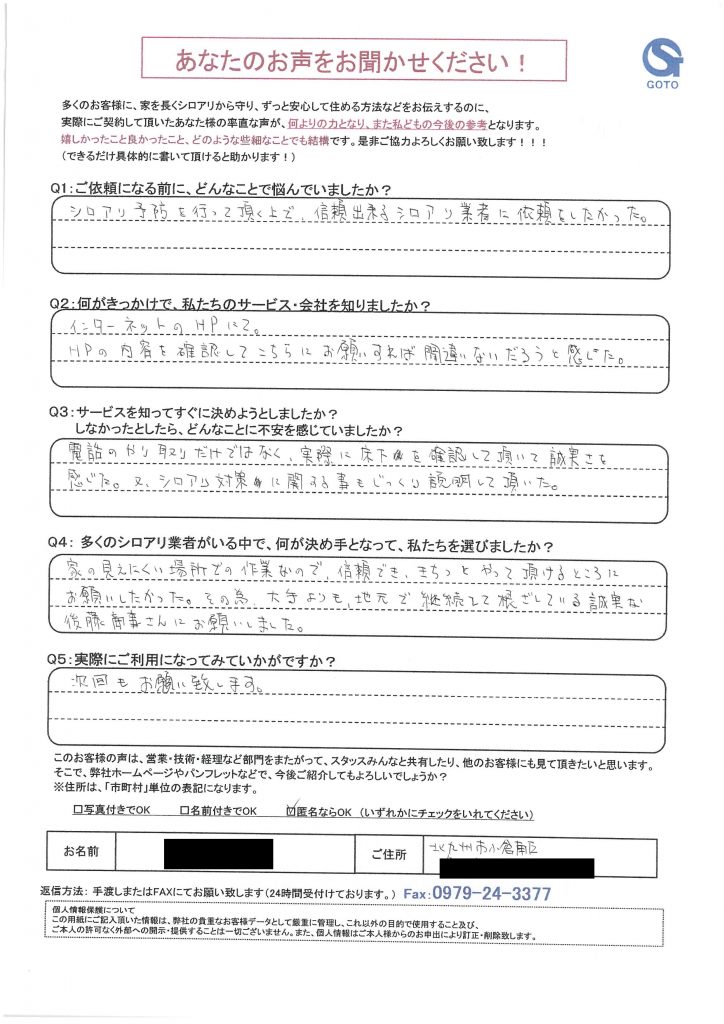 あなたのお声をお聞かせください！
GOTO
多くのお客様に、家を長くシロアリから守り、ずっと安心して住める方法などをお伝えするのに、
実際にご契約して頂いたあなた様の率直な声が、何よりの力となり、また私どもの今後の参考となります。
嬉しかったこと良かったこと、どのような些細なことでも結構です。是非ご協力よろしくお願い致します！！！
（できるだけ具体的に書いて頂けると助かります！）
Q1：ご依頼になる前に、どんなことで悩んでいましたか？
シロアリ予防を行って頂く上で、信頼出来るシロアリ業者に依頼をしたかった。
Q2：何がきっかけで、私たちのサービス・会社を知りましたか？
インターネットのHPにて。
HPの内容を確認してこちらにお願いすれば間違いないだろうと感じた。
Q3：サービスを知ってすぐに決めようとしましたか？
しなかったとしたら、どんなことに不安を感じていましたか？
電話のやり取りだけではなく、実際に床下を確認して頂いて誠実さを
感じた。又、シロアリ対策に関する事もじっくり説明して頂いた。
Q4： 多くのシロアリ業者がいる中で、何が決め手となって、私たちを選びましたか？
家の見えにくい場所での作業なので、信頼でき、きちっとやって頂けるところに
お願いしたかった。その為、大手よりも、地元で継続して根ざしている誠実な
後藤商事さんにお願いしました。
Q5：実際にご利用になってみていかがですか？
次回もお願い致します。
このお客様の声は、営業・技術・経理など部門をまたがって、スタッスみんなと共有したり、他のお客様にも見て頂きたいと思います。
そこで、弊社ホームページやパンフレットなどで、今後ご紹介してもよろしいでしょうか？
※住所は、「市町村」単位の表記になります。
□写真付きでOK □名前付きでOK ☑匿名ならOK （いずれかにチェックをいれてください）
お名前 ご住所 北九州市小倉南区
返信方法： 手渡しまたはFAXにてお願い致します（24時間受付けております。） Fax：0979-24-3377
個人情報保護について
この用紙にご記入頂いた情報は、弊社の貴重なお客様データとして厳重に管理し、これ以外の目的で使用すること及び、
ご本人の許可なく外部への開示・提供することは一切ございません。また、個人情報はご本人様からのお申出により訂正・削除致します。